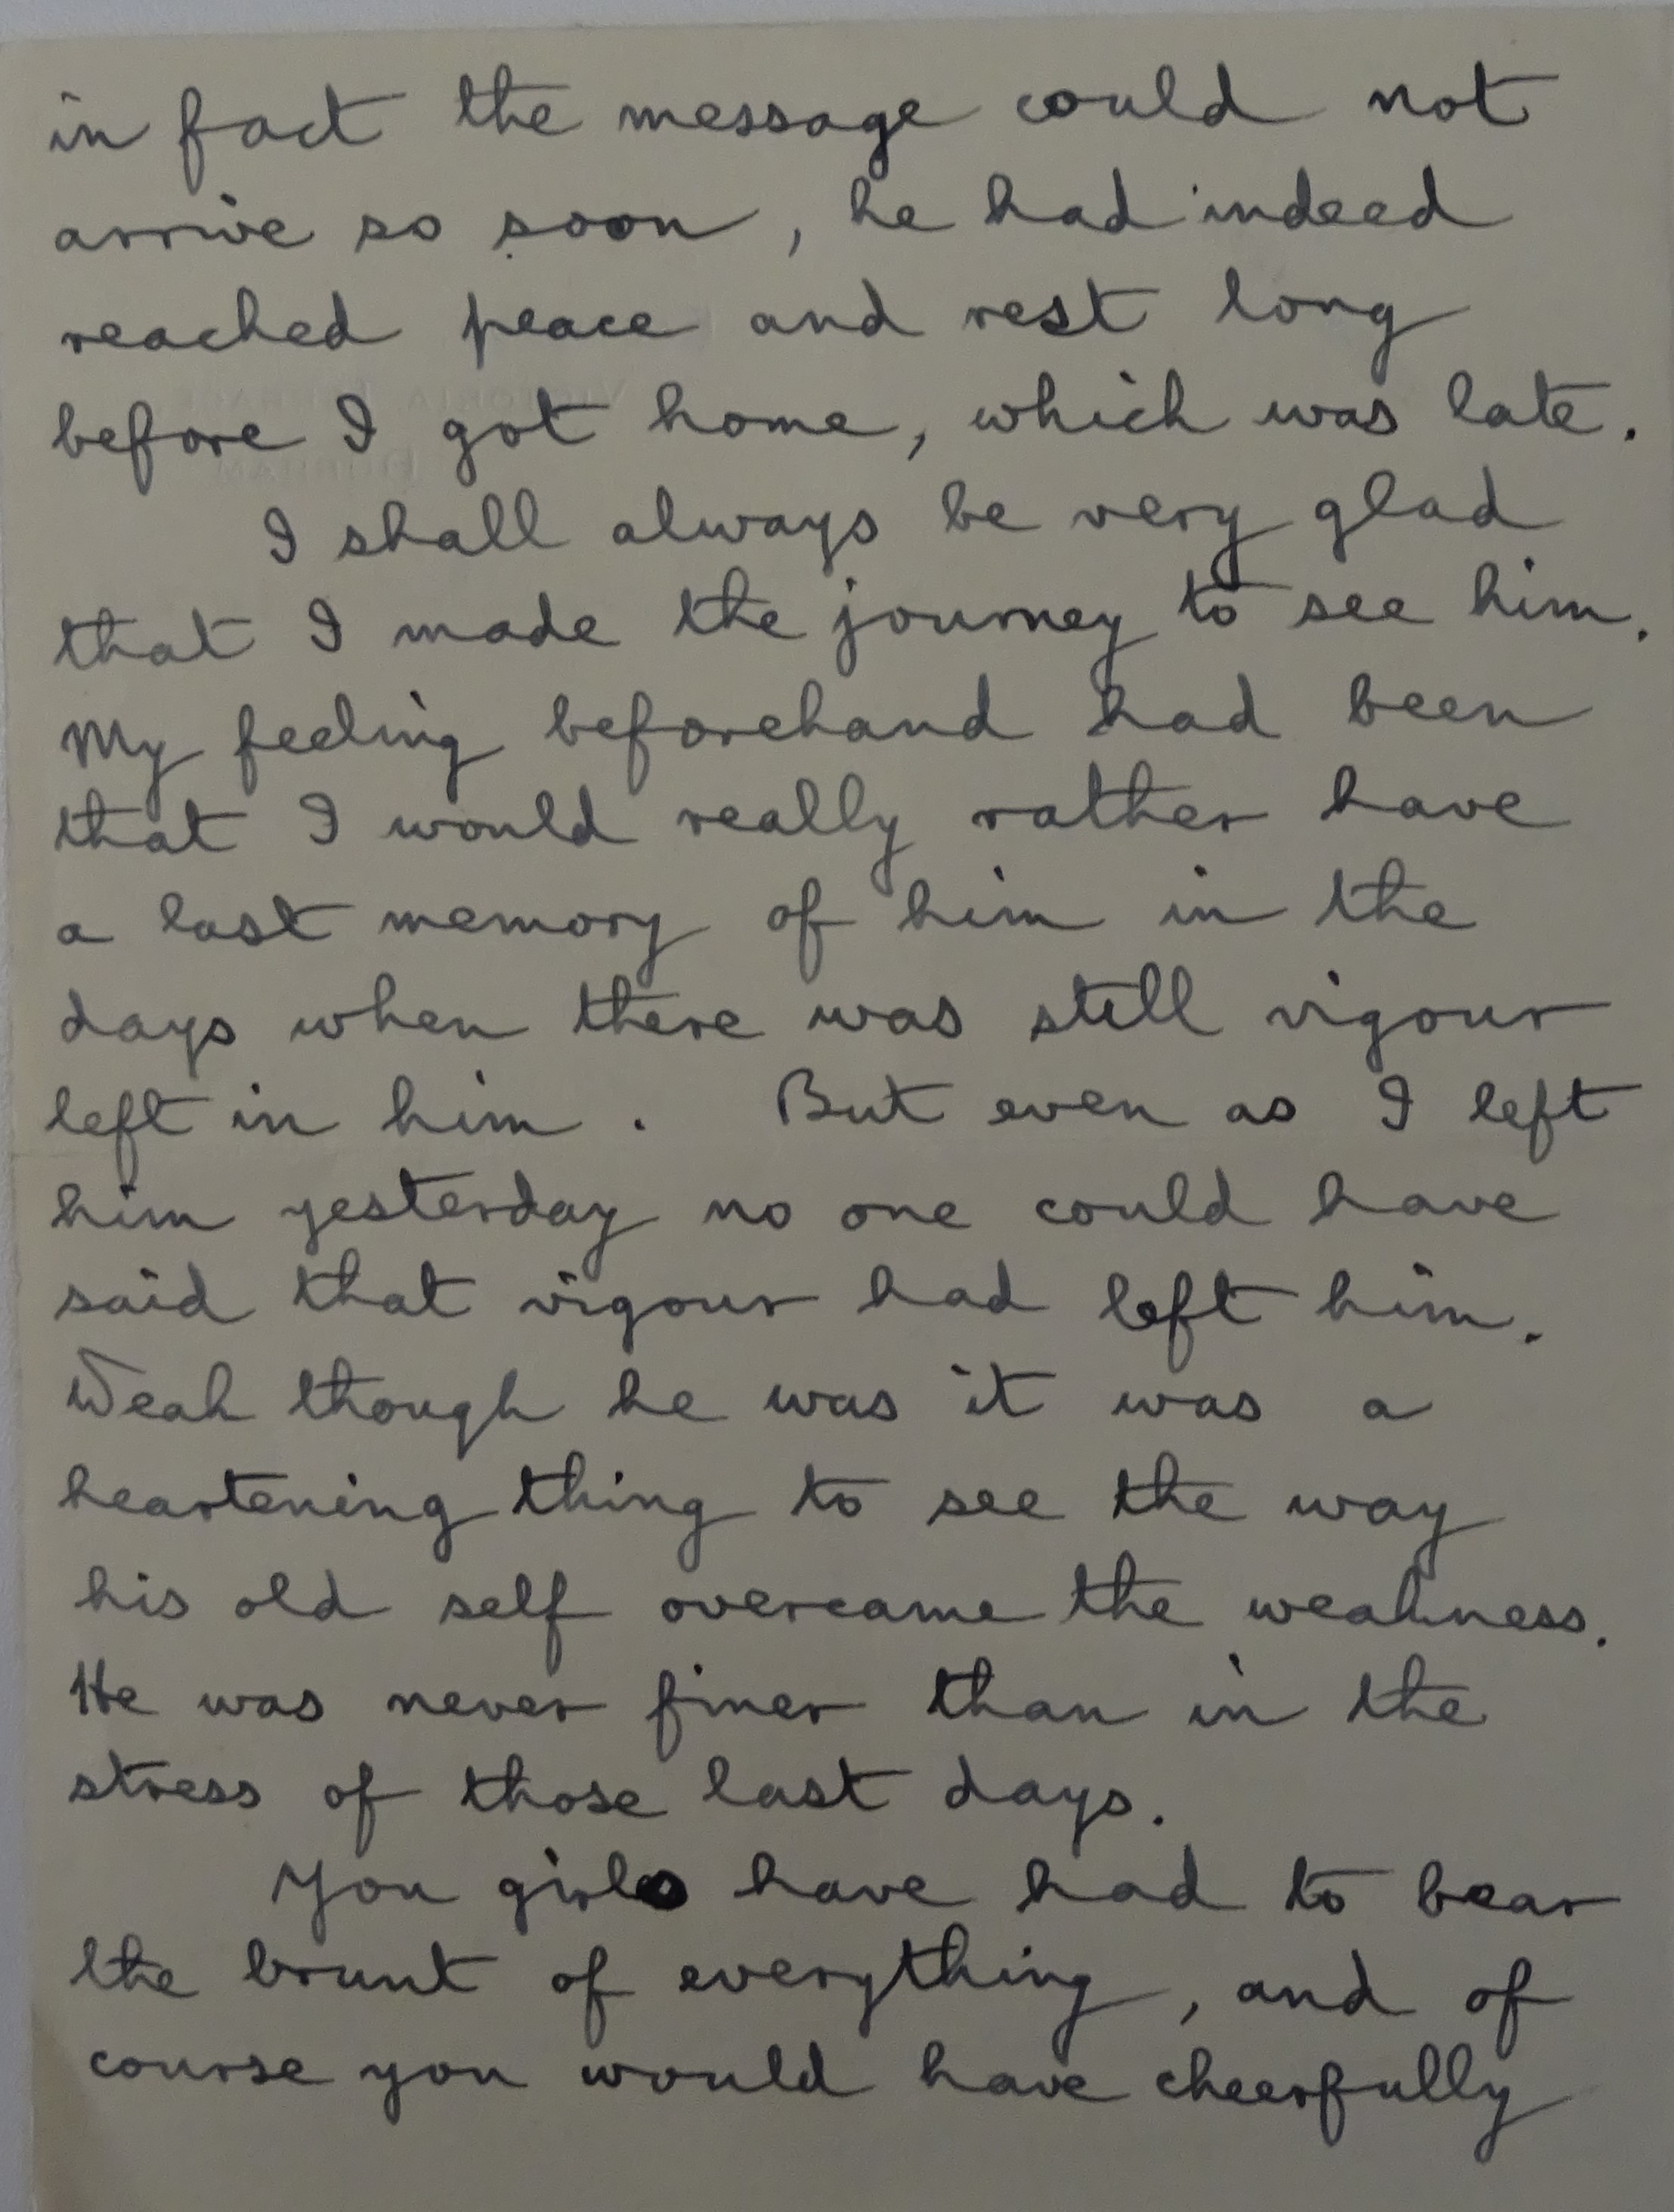 in fact the message could not
arrive so soon, he had indeed
reached peace and rest long
before I got home, which was late.
I shall always be very glad
that I made the journey to see him.
My feeling beforehand had been
that I would really rather have
a last memory of him in the
days when there was still vigour
left in him. But even as I left
him yesterday no one could have
said that vigour had left him.
Weak though he was it was a
heartening thing to see the way
his old self overcame the weakness.
He was never finer than in the
stress of those last days.
You girls have had to bear
the brunt of everything, and of
course you would have cheerfully